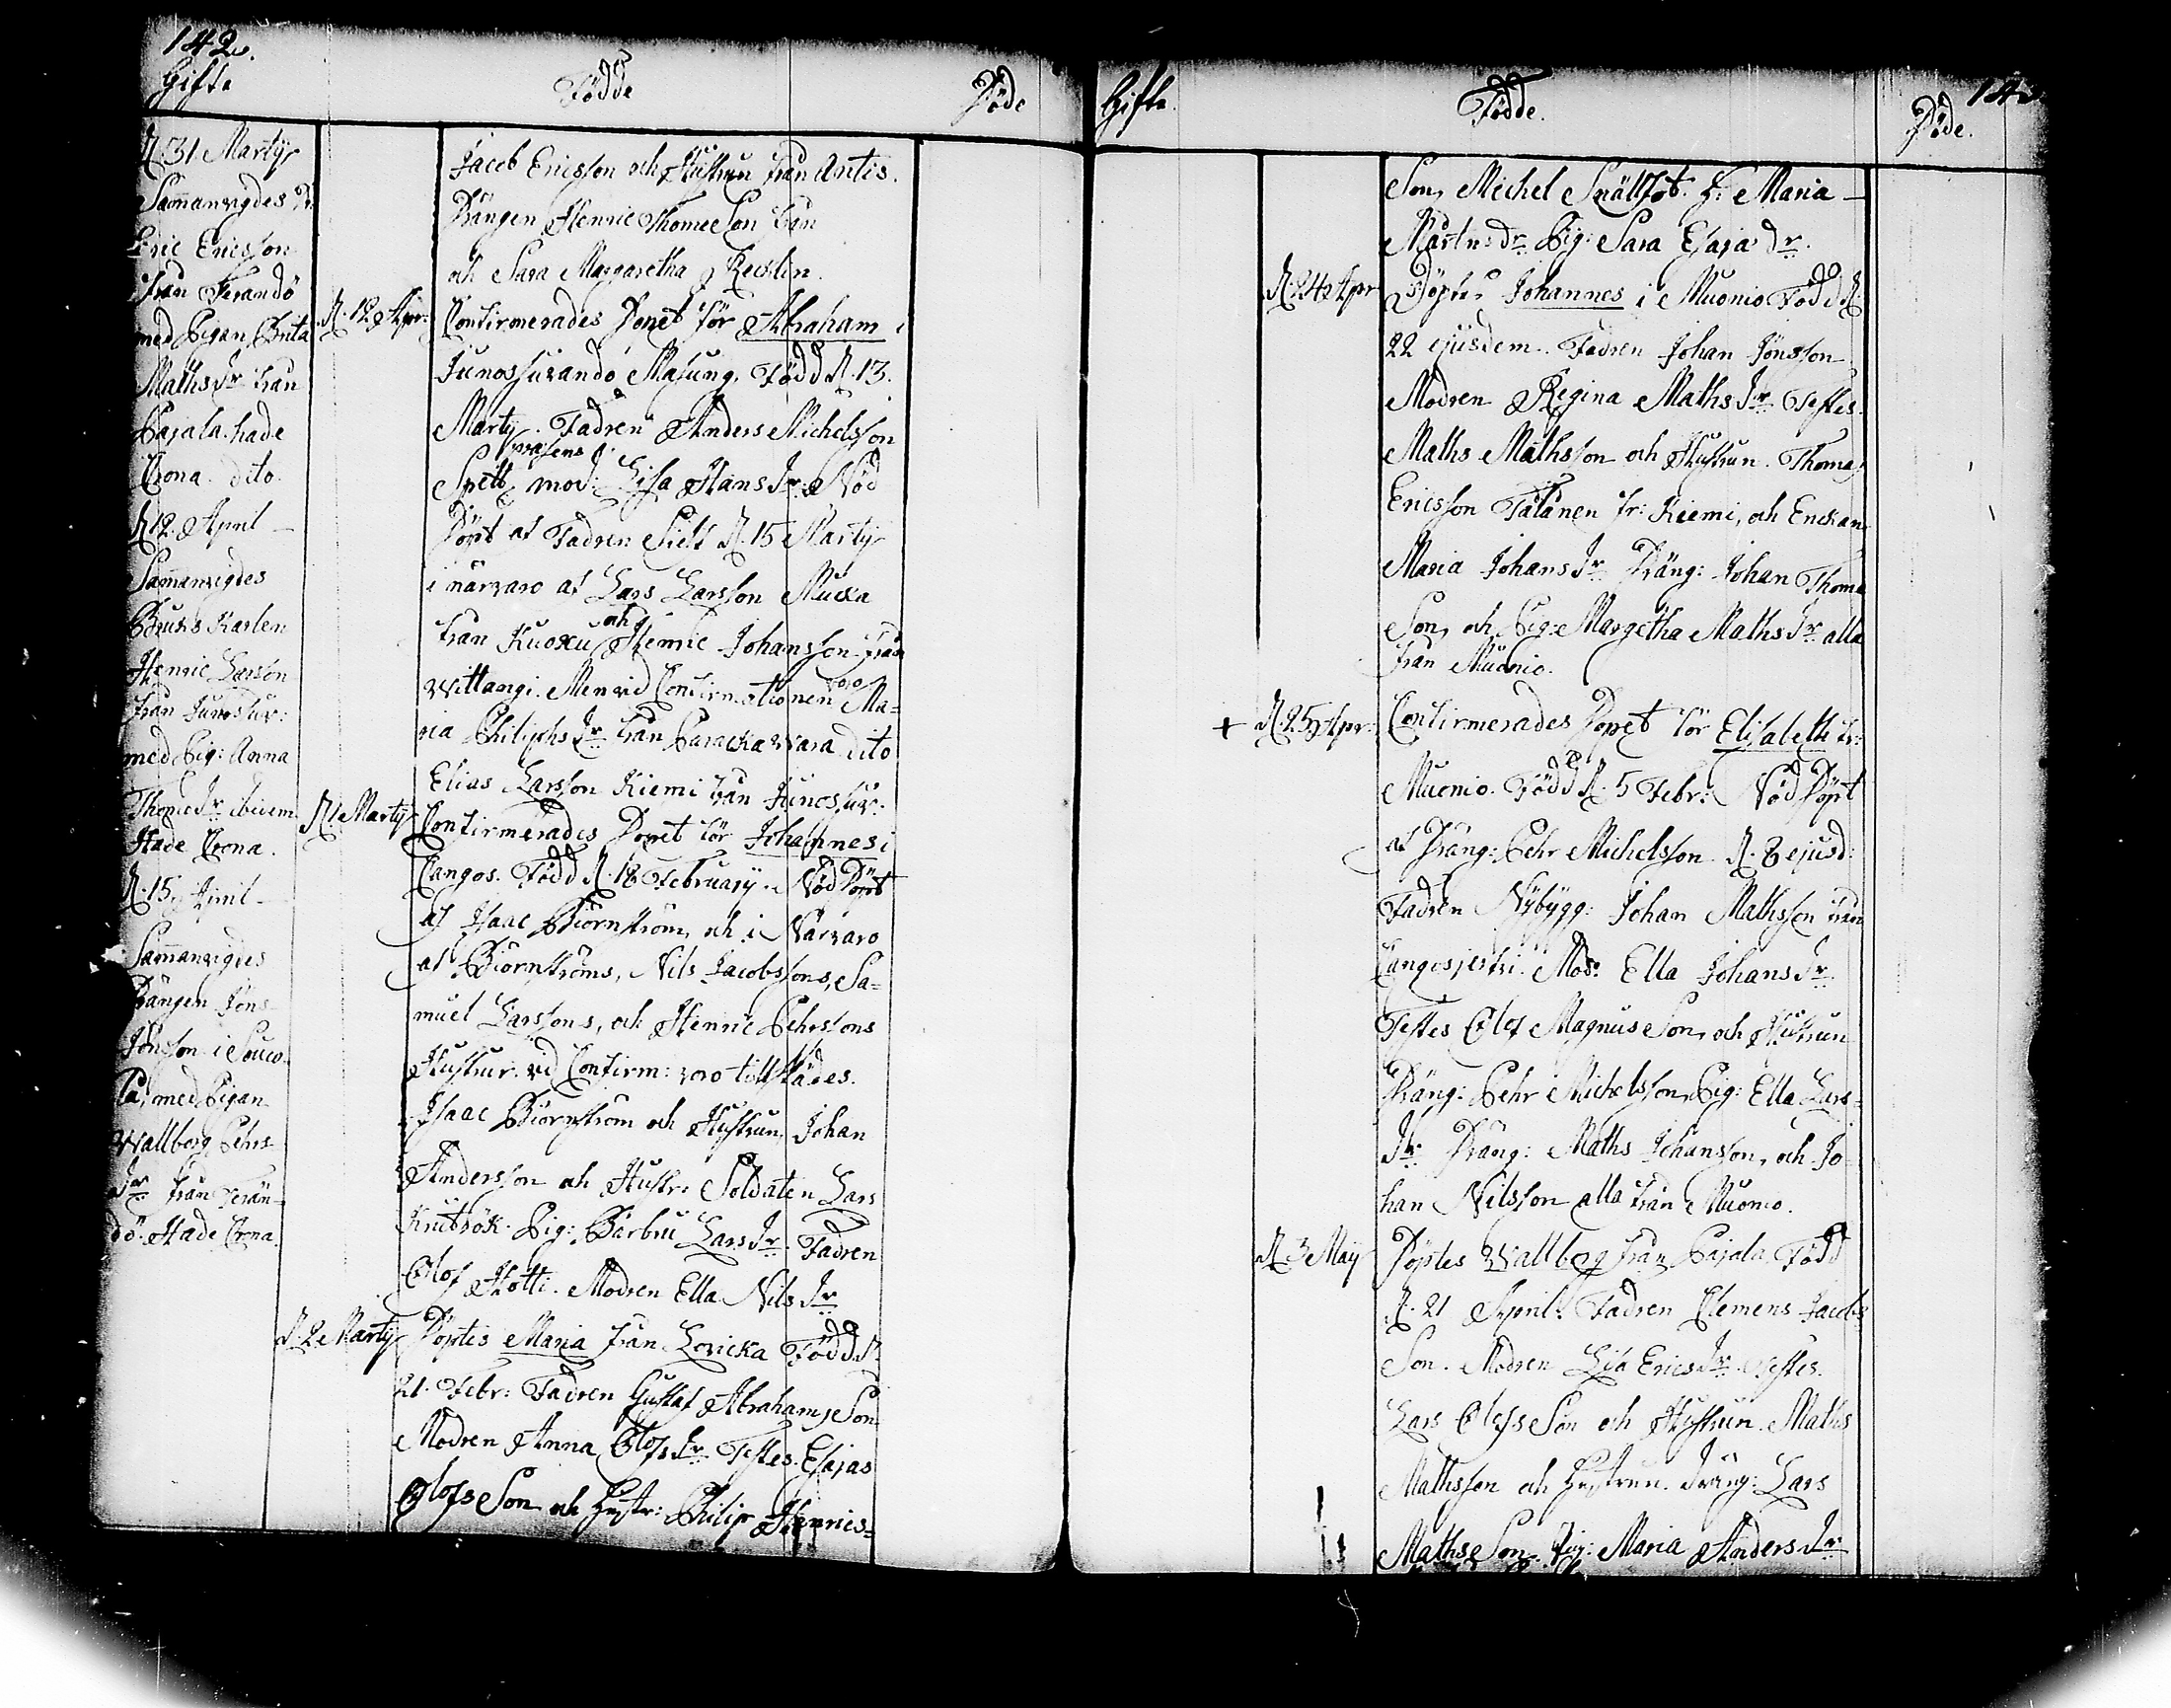 142.
Gifte
Födde
Döde
D. 31 Martÿ
Sam̄anvigdes Dr.
Eric Ericsson
från Terandö
med Pigan Brita
Maths Dr från
Pajala. hade
Crona. dito.
D. 12. April –
Sam̄anvigdes
Bruks Karlen
Henric Larson
från Junosur:
med Pig: Anna
Thome Dr. ibidem
Hade Crona.
D. 15. April –
Sam̄anvigdes
Drängen Jöns
Jönsson i Souw-
la, med Pigan
Wallborg Pehrs-
Dr från Terän-
dö. Hade Crona.
Jacob Ericsson och Hustrun från Antis.
Drängen Henric Thome Son från
och Sara Margaretha
D. 12. Apr: Confirmerades Dopet för Abraham i
Junossuando Masung. Född D. 13.
Martÿ. Fadren Anders Michelsson
præsens
Spett, mod: Lisa Hans Dr. Nöd
Döpt af Fadren Sielf D. 15 Martÿ
i närvaro af Lars Larsson Mucka
och
från Kuoxu Henric Johansson från
voro
Wittangi. Men vid Confirmationen Ma=
ria Philiphs Dr från Parackawara dito
Elias Larsson Kiemi från Junossur:
D. 1 Martÿ Confirmerades Dopet för Johannes i
Cangos. Född D. 18 Februarÿ. Nöd Döpt
af Isaac Biörnström, och i Närvaro
af Biörnströms, Nils Jacobssons, Sa=
muel Larssons, och Henric Pehrssons
Hustrur. vid Confirm: voro tillstädes.
Isaac Biörnström och Hustrun, Johan
Andersson och Hustr: Soldaten Lars
Knibsök. Pig: Barbru Lars Dr. Fadren
Olof Hotti. Modren Ella Nils Dr
D. 2 Martÿ Döptes Maria från Lovicka Född D.
21. Febr: Fadren Gustaf Abrahams Son
Modren Anna Olofs Dr Testes. Esajas
Olofs Son och Hustr: Philip Henrics=
Gifte.
Födde.
Döde.
143
Son, Michel Snällfot. H: Maria –
Mårtns dr. Pig: Sara Esaja dr.
D. 24 Apr Döptes Johannes i Muonio Född D.
22 ejusdem. Fadren Johan Jönsson
Modren Regina Maths Dr Testes.
Maths Mathsson och Hustrun. Thomas
Ericsson Talanen fr: Kiemi, och Enckan
Maria Johans Dr Dräng: Johan Thome
Son, och Pig: Margetha Maths Dr alla
från Muonio.
+ D. 25 Apr: Confirmerades Dopet för Elisabeth fr:
Muonio. Född D. 5 Febr: Nöd Döpt
af Dräng: Pehr Michelsson. D. 8 ejusd:
Fadren Nÿbÿgg: Johan Mathsson från
Cangosjerfvi. Mod: Ella Johans Dr.
Testes Olof Magnus Son, och Hustrun
Dräng: Pehr Michelsson, Pig: Ella Lars=
Dr. Dräng: Maths Johansson, och Jo-
han Nilsson alla från Muonio.
D. 3 Maÿ Döptes Wallborg från Pajala, Född
D. 21 April. Fadren Clemens Jacobs
Son. Modren Lisa Erics Dr. Testes.
Lars Olofs Son och Hustrun. Maths
Mathsson och Hustrun. Dräng: Lars
Maths Son. Pig: Maria Anders Dr